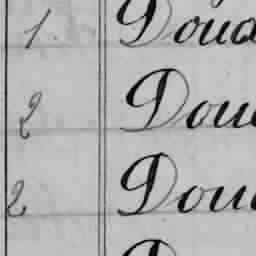 1. Doua
2 Dou
2 Dou